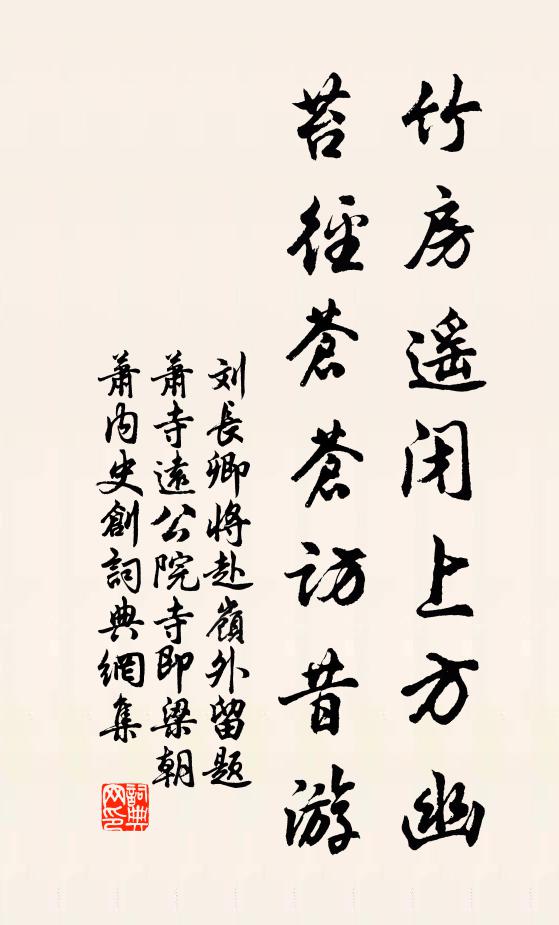 竹房遥闭上方幽
苔徑蒼蒼访昔游
刘長卿將赴嶺外留題
蕭寺遠公院寺即梁朝
蕭内史創詞典網集
詞典网印